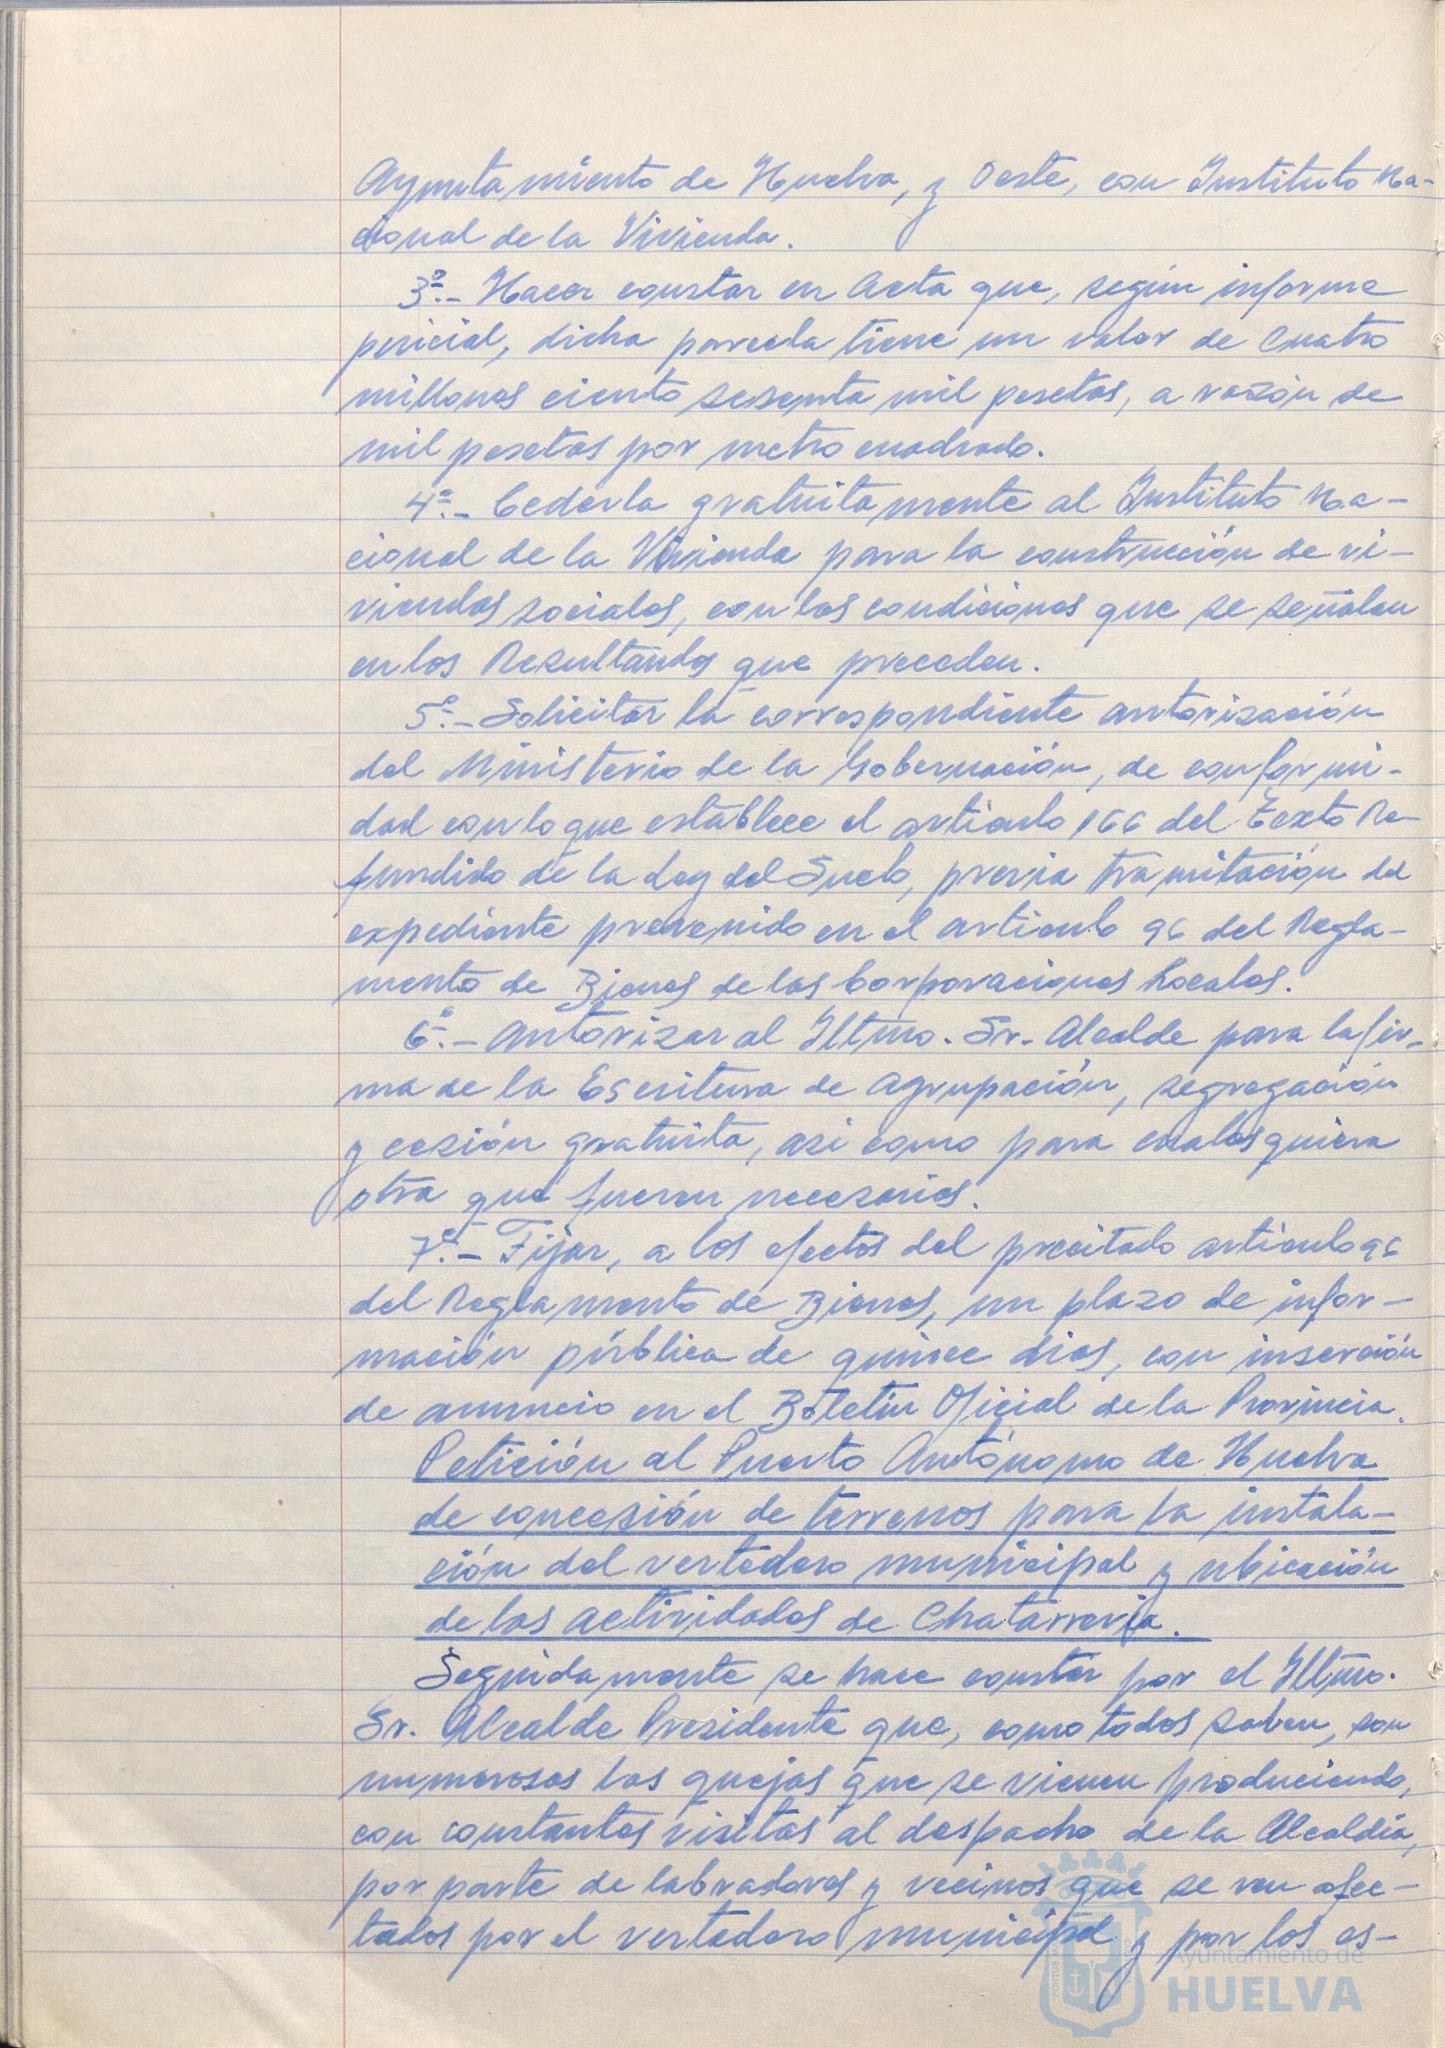 Ayuntamiento de Huelva, y Oeste, con Instituto Na-
cional de la Vivienda.
3º.- Hacer constar en Acta que, según informe
pericial, dicha parcela tiene un valor de cuatro
millones ciento sesenta mil pesetas, a razón de
mil pesetas por metro cuadrado.
4º.- Cederla gratuitamente al Instituto Na-
cional de la Vivienda para la construcción de vi-
viendas sociales, con las condiciones que se señalan
en los Resultandos que preceden.
5º.- Solicitar la correspondiente autorización
del Ministerio de la Gobernación, de conformi-
dad con lo que establece el artículo 166 del Texto Re-
fundido de la Ley del Suelo, previa tramitación del
expediente prevenido en el artículo 96 del Regla-
mento de Bienes de las Corporaciones Locales.
6º.- Autorizar al Iltmo. Sr. Alcalde para la fir-
ma de la Escritura de Agrupación, segregación
y cesión gratuita, asi como para cualesquiera
otra que fueren necesarias.
7º.- Fijar, a los efectos del precitado artículo 96
del Reglamento de Bienes, un plazo de infor-
mación pública de quince dias, con inserción
de anuncio en el Boletin Oficial de la Provincia.
Petición al Puerto Autónomo de Huelva
de concesión de terrenos para la instala-
ción del vertedero municipal y ubicación
de las actividades de Chatarreria.
Seguidamente se hace constar por el Iltmo.
Sr. Alcalde Presidente que, como todos saben, son
numerosas las quejas que se vienen produciendo,
con constantes visitas al despacho de la Alcaldía,
por parte de labradores y vecinos que se ven afec-
tados por el vertedero municipal y por los es-
Ayuntamiento de
HUELVA